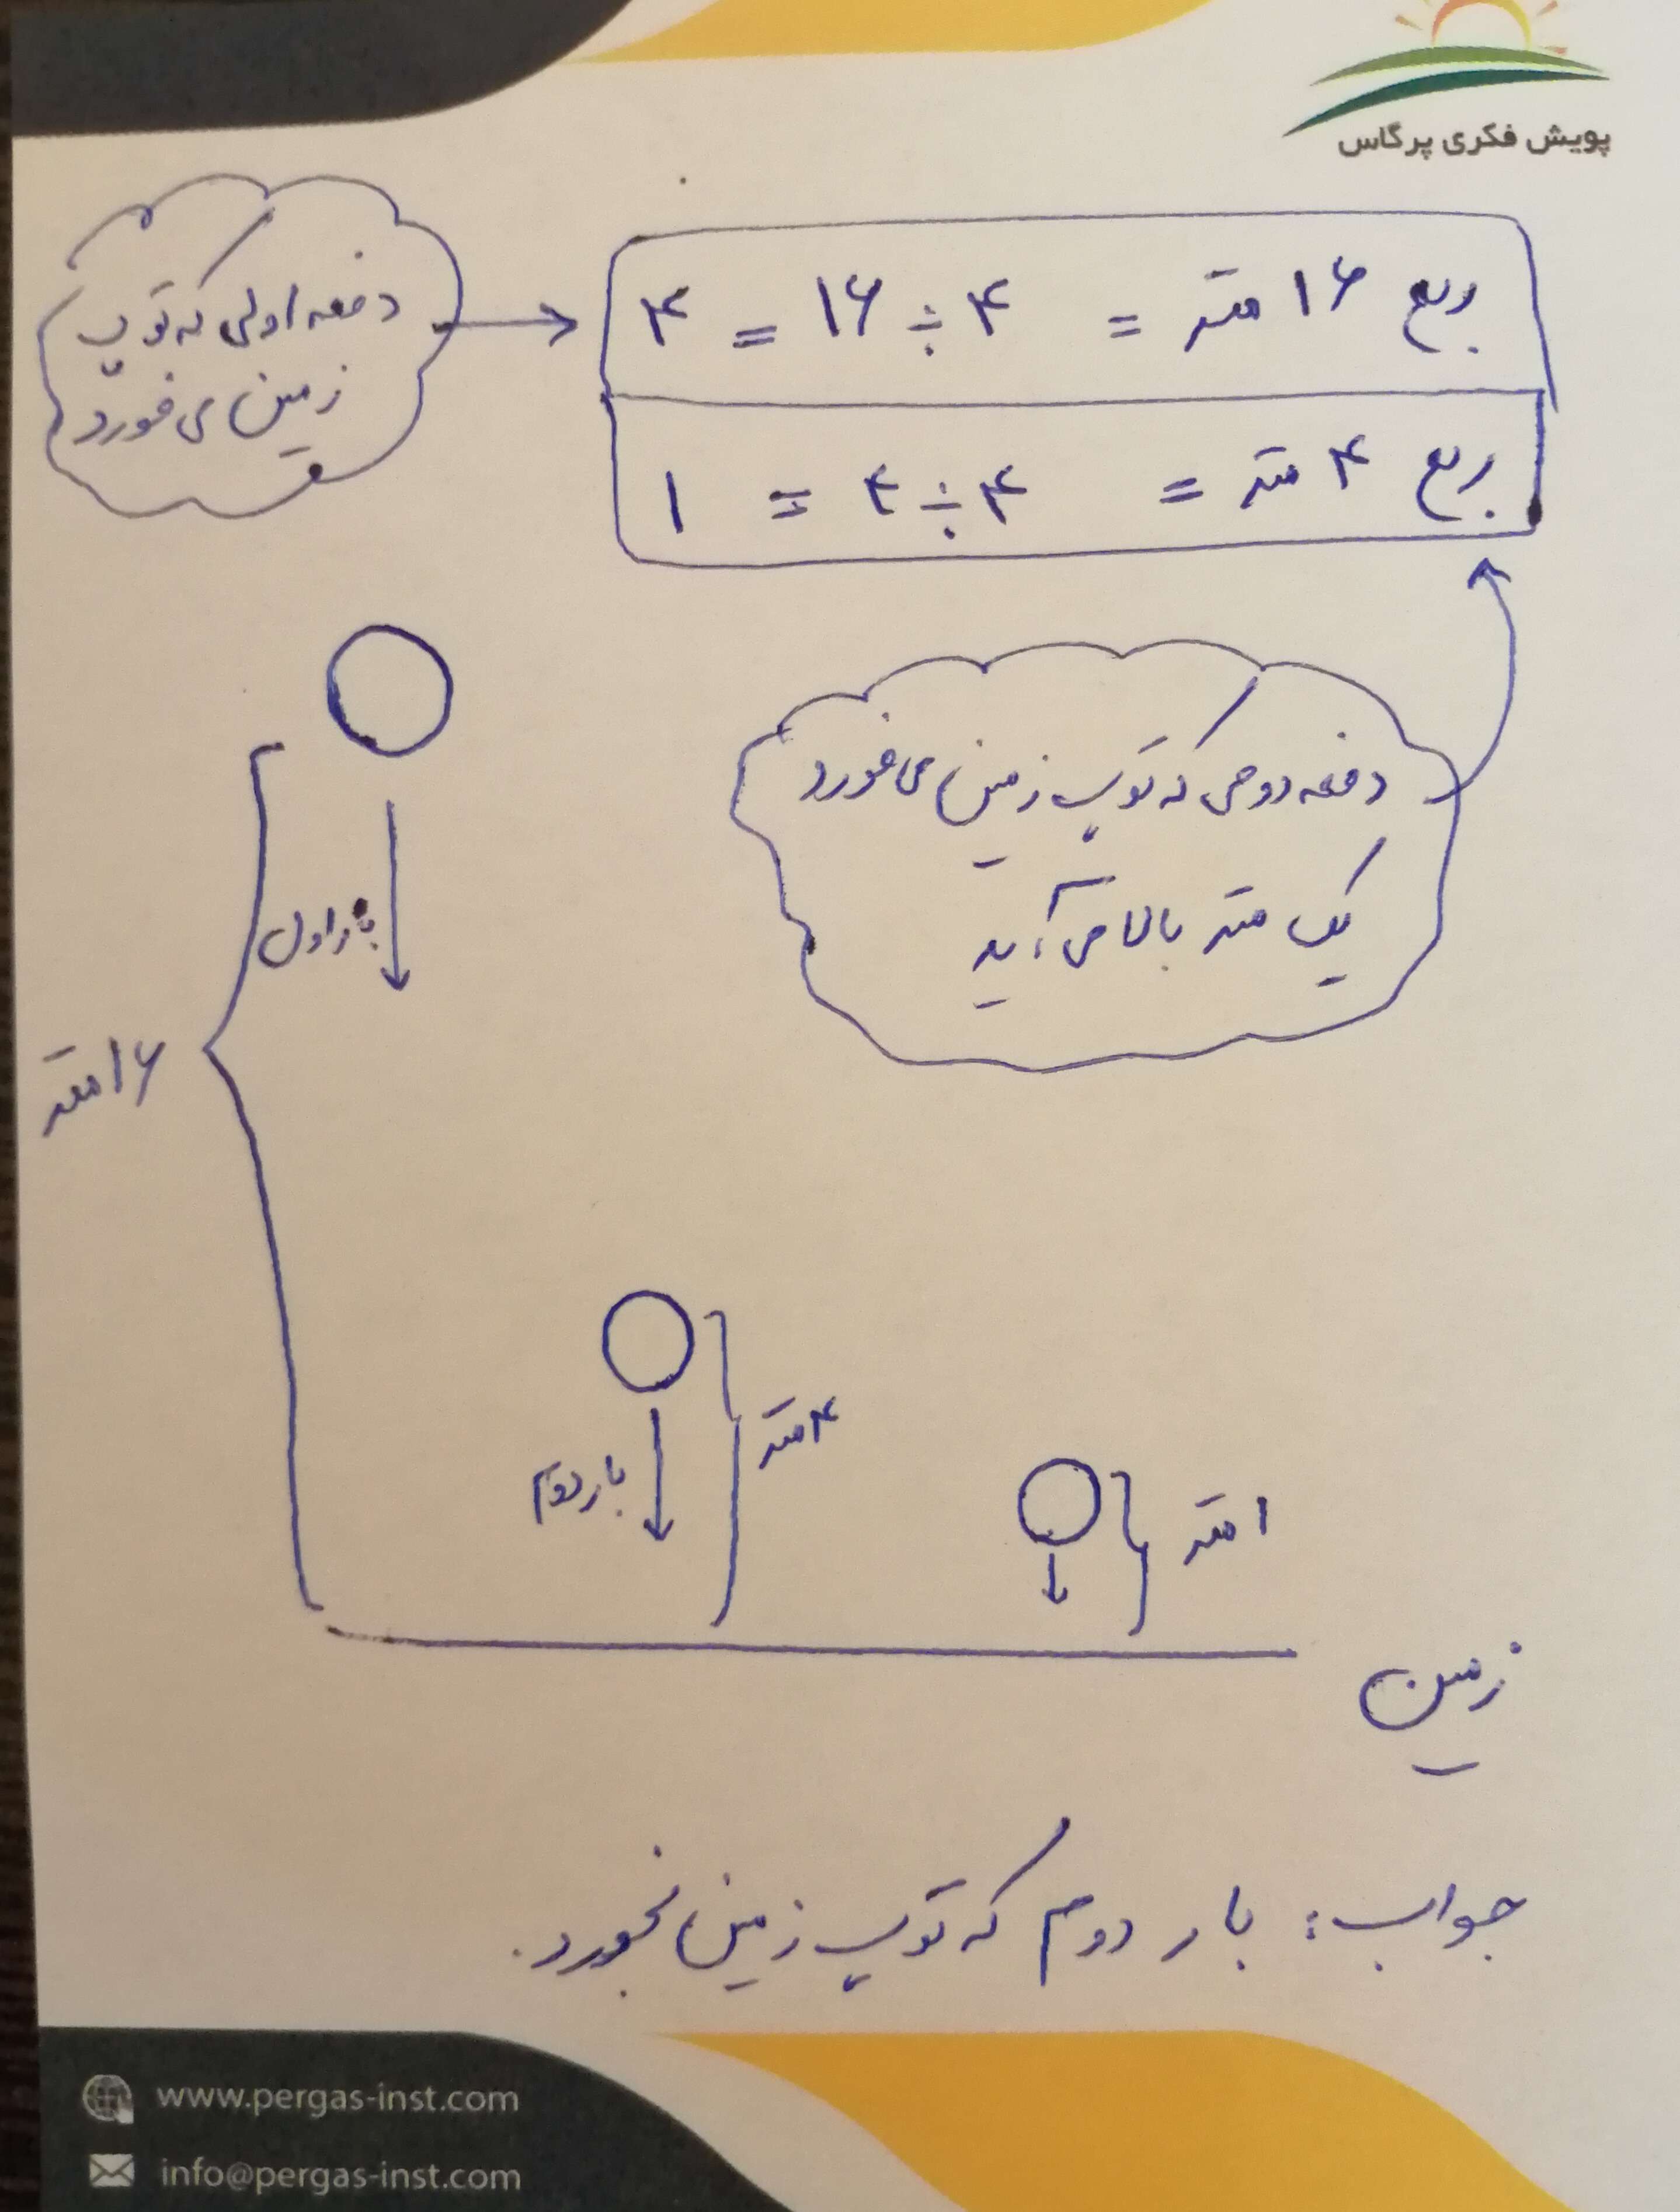 پویش فکری پرگاس
ربع ۱۶ متر = ۱۶ ÷ ۴ = ۴
ربع ۴ متر = ۴ ÷ ۴ = ۱
دفعه اولی که توپ
زمین می خورد
دفعه دومی که توپ زمین می خورد
یک متر بالا می آید
بار اول
۱۶ متر
بار دوم
۴ متر
۱ متر
زمین
جواب: بار دوم که توپ زمین بخورد.
www.pergas-inst.com
info@pergas-inst.com